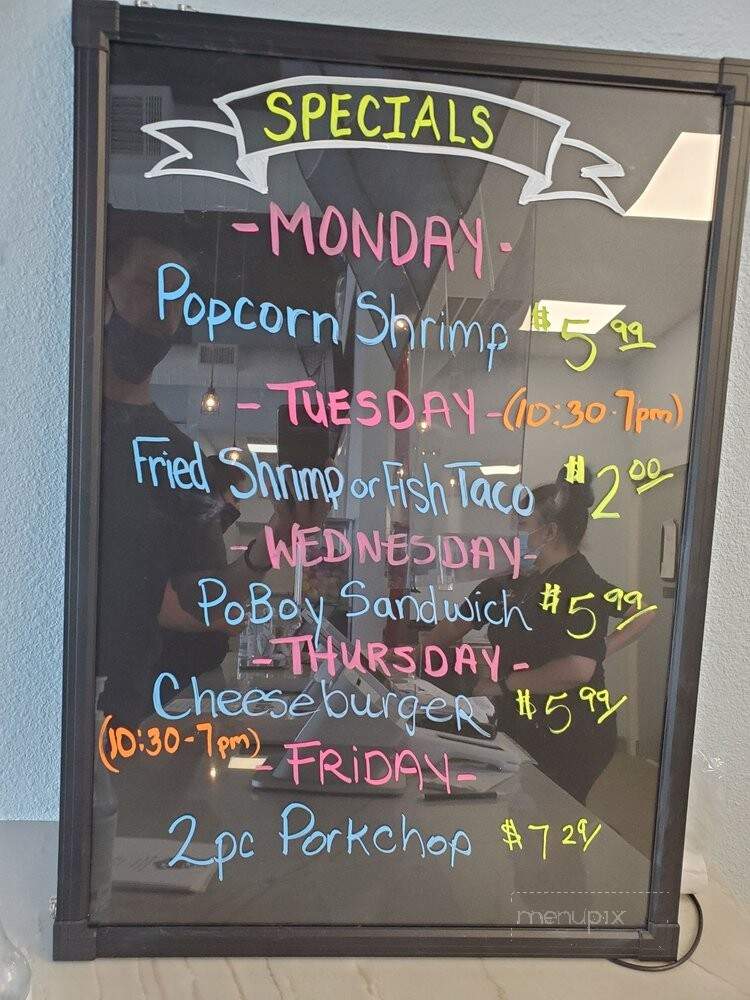 SPECIALS
-MONDAY-
Popcorn Shrimp $5.99
-TUESDAY-(10:30-7pm)
Fried Shrimp or Fish Taco $2.00
-WEDNESDAY-
PoBoy Sandwich $5.99
-THURSDAY-
CheeseburgeR $5.99
(10:30-7pm)
-FRiDAY-
2pc Porkchop $7.29
menupix